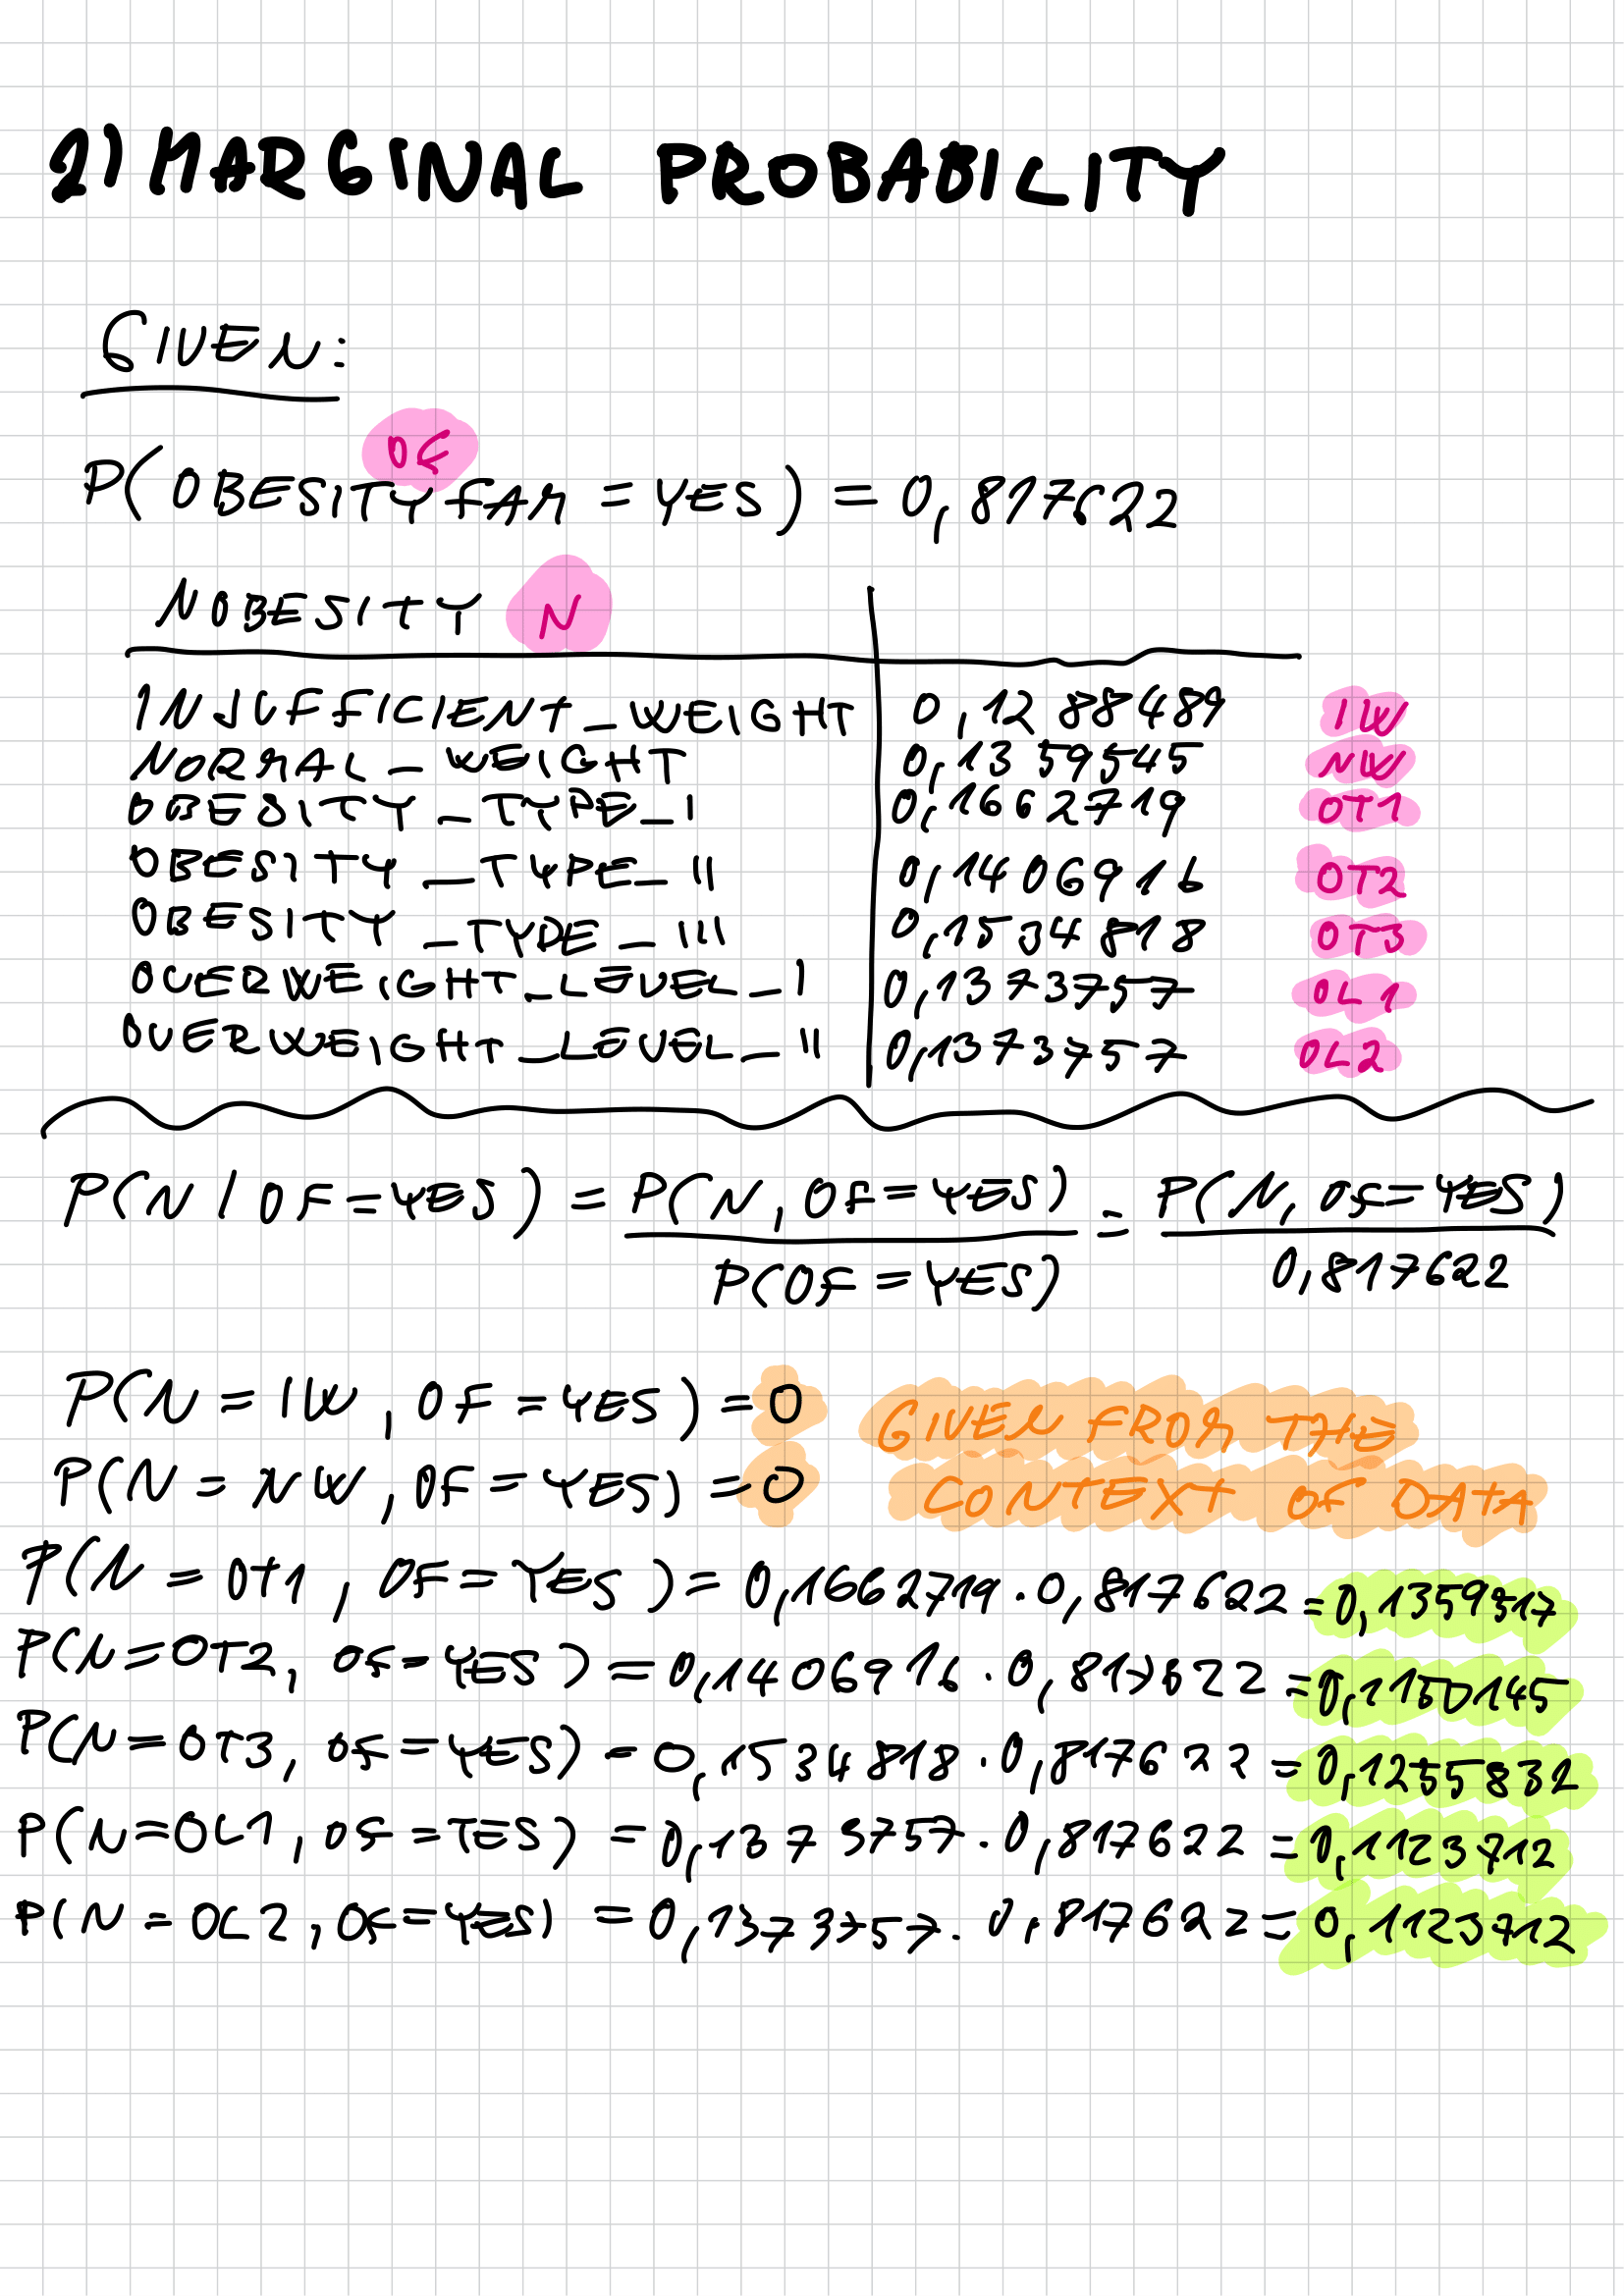 2) MARGINAL PROBABILITY
GIVEN:
OF
P( OBESITYFAM = YES ) = 0,817622
NOBESITY N
INSUFFICIENT_WEIGHT 0,1288489 IW
NORMAL_WEIGHT 0,1359545 NW
OBESITY_TYPE_I 0,1662719 OT1
OBESITY_TYPE_II 0,1406916 OT2
OBESITY_TYPE_III 0,1534818 OT3
OVERWEIGHT_LEVEL_I 0,1373757 OL1
OVERWEIGHT_LEVEL_II 0,1373757 OL2
P(N | OF=YES) = P(N, OF=YES) / P(OF=YES) = P(N, OF=YES) / 0,817622
P(N = IW, OF = YES) = 0 GIVEN FROM THE
P(N = NW, OF = YES) = 0 CONTEXT OF DATA
P(N = OT1, OF = YES) = 0,1662719 · 0,817622 = 0,1359517
P(N=OT2, OF=YES) = 0,1406916 · 0,817622 = 0,1150145
P(N=OT3, OF=YES) = 0,1534818 · 0,817622 = 0,1255832
P(N=OL1, OF=YES) = 0,1373757 · 0,817622 = 0,1123712
P(N=OL2, OF=YES) = 0,1373757 · 0,817622 = 0,1123712